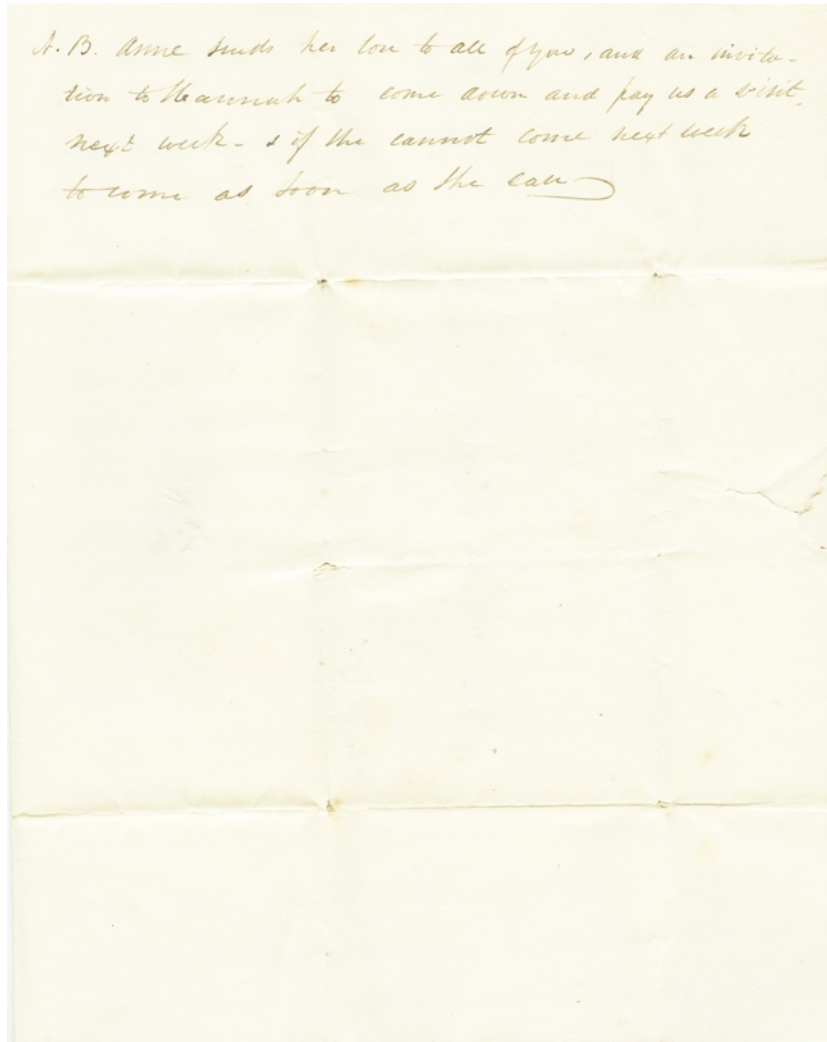 N. B. Anne sends her love to all of you, and an invita-
tion to Hannah to come down and pay us a visit
next week - & if she cannot come next week
to come as soon as she can